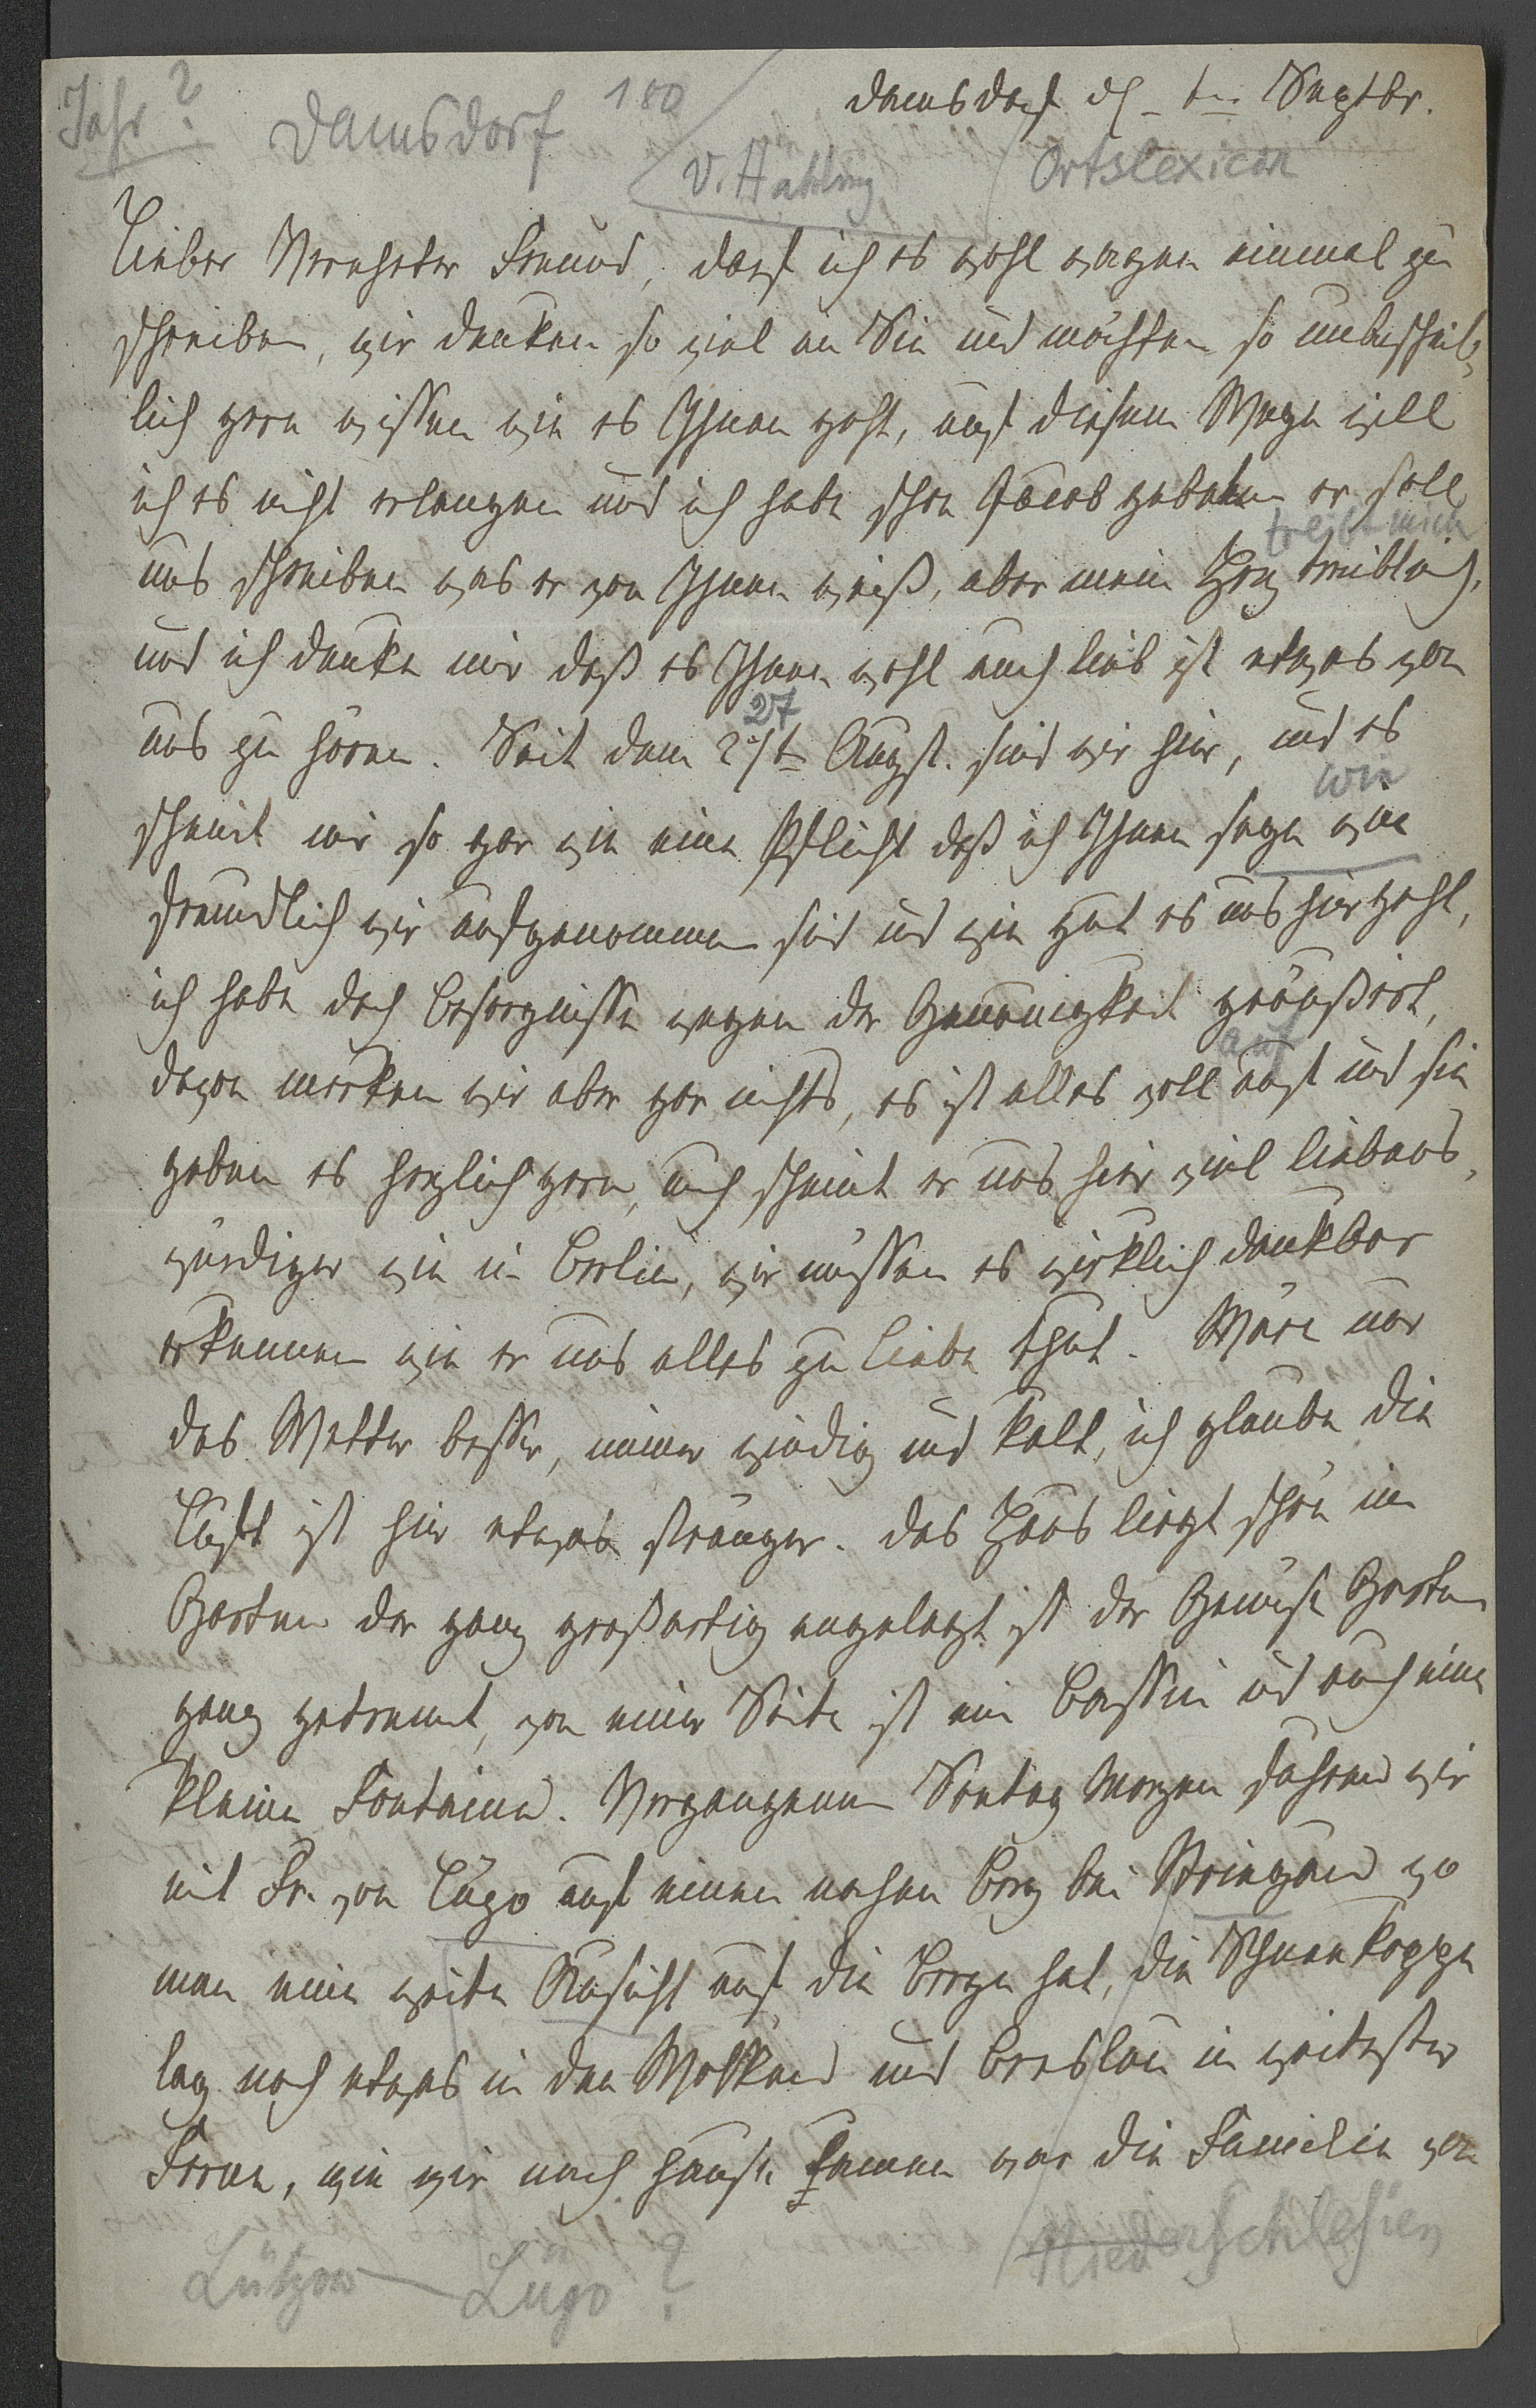 Jahr?
Damsdorf
180
v. Hähling
Ortslexicon
Damsdorf d. - ten Septbr.
Lieber Verehrter Freund, darf ich es wohl wagen einmal zu
schreiben, wir denken so viel an Sie und möchten so unbeschreib¬
lich gern wissen wie es Ihnen geht, auf diesem Wege will
ich es nicht erlangen und ich habe schon Jacob gebeten er soll
treibt mich
uns schreiben was er von Ihnen weiß, aber mein Herz treibt mich,
und ich denke mir daß es Ihnen wohl auch lieb ist etwas von
27
uns zu hören. Seit dem 27t Augst. sind wir hier, und es
wie
scheint mir so gar wie eine Pflicht daß ich Ihnen sage wie
freundlich wir aufgenommen sind und wie gut es uns hier geht,
ich habe doch Besorgnisse wegen der Genauigkeit geäußert,
auf
davon merken wir aber gar nichts, es ist alles voll auf und sie
geben es herzlich gern, auch scheint er uns hier viel liebens¬
würdiger wie in Berlin, wir müssen es wirklich dankbar
erkennen wie er uns alles zu Liebe thut. Wäre nur
das Wetter besser, immer windig und kalt, ich glaube die
Luft ist hier etwas strenger. Das Haus liegt schön im
Garten der ganz großartig angelegt ist der Gemüse Garten
ganz getrennt, von einer Seite ist ein Bassin und auch eine
kleine Fontaine. Vergangenen Sontag Morgen fuhren wir
mit Fr. von Lügo auf einen nahen Berg bei Striegau wo
man eine weite Aussicht auf die Berge hat, die Schneekoppe
lag noch etwas in den Wolken und Breslau in weitester
Ferne, wie wir nach Hause kamen war die Familie von
Lützow - Lügo?
Niederschlesien